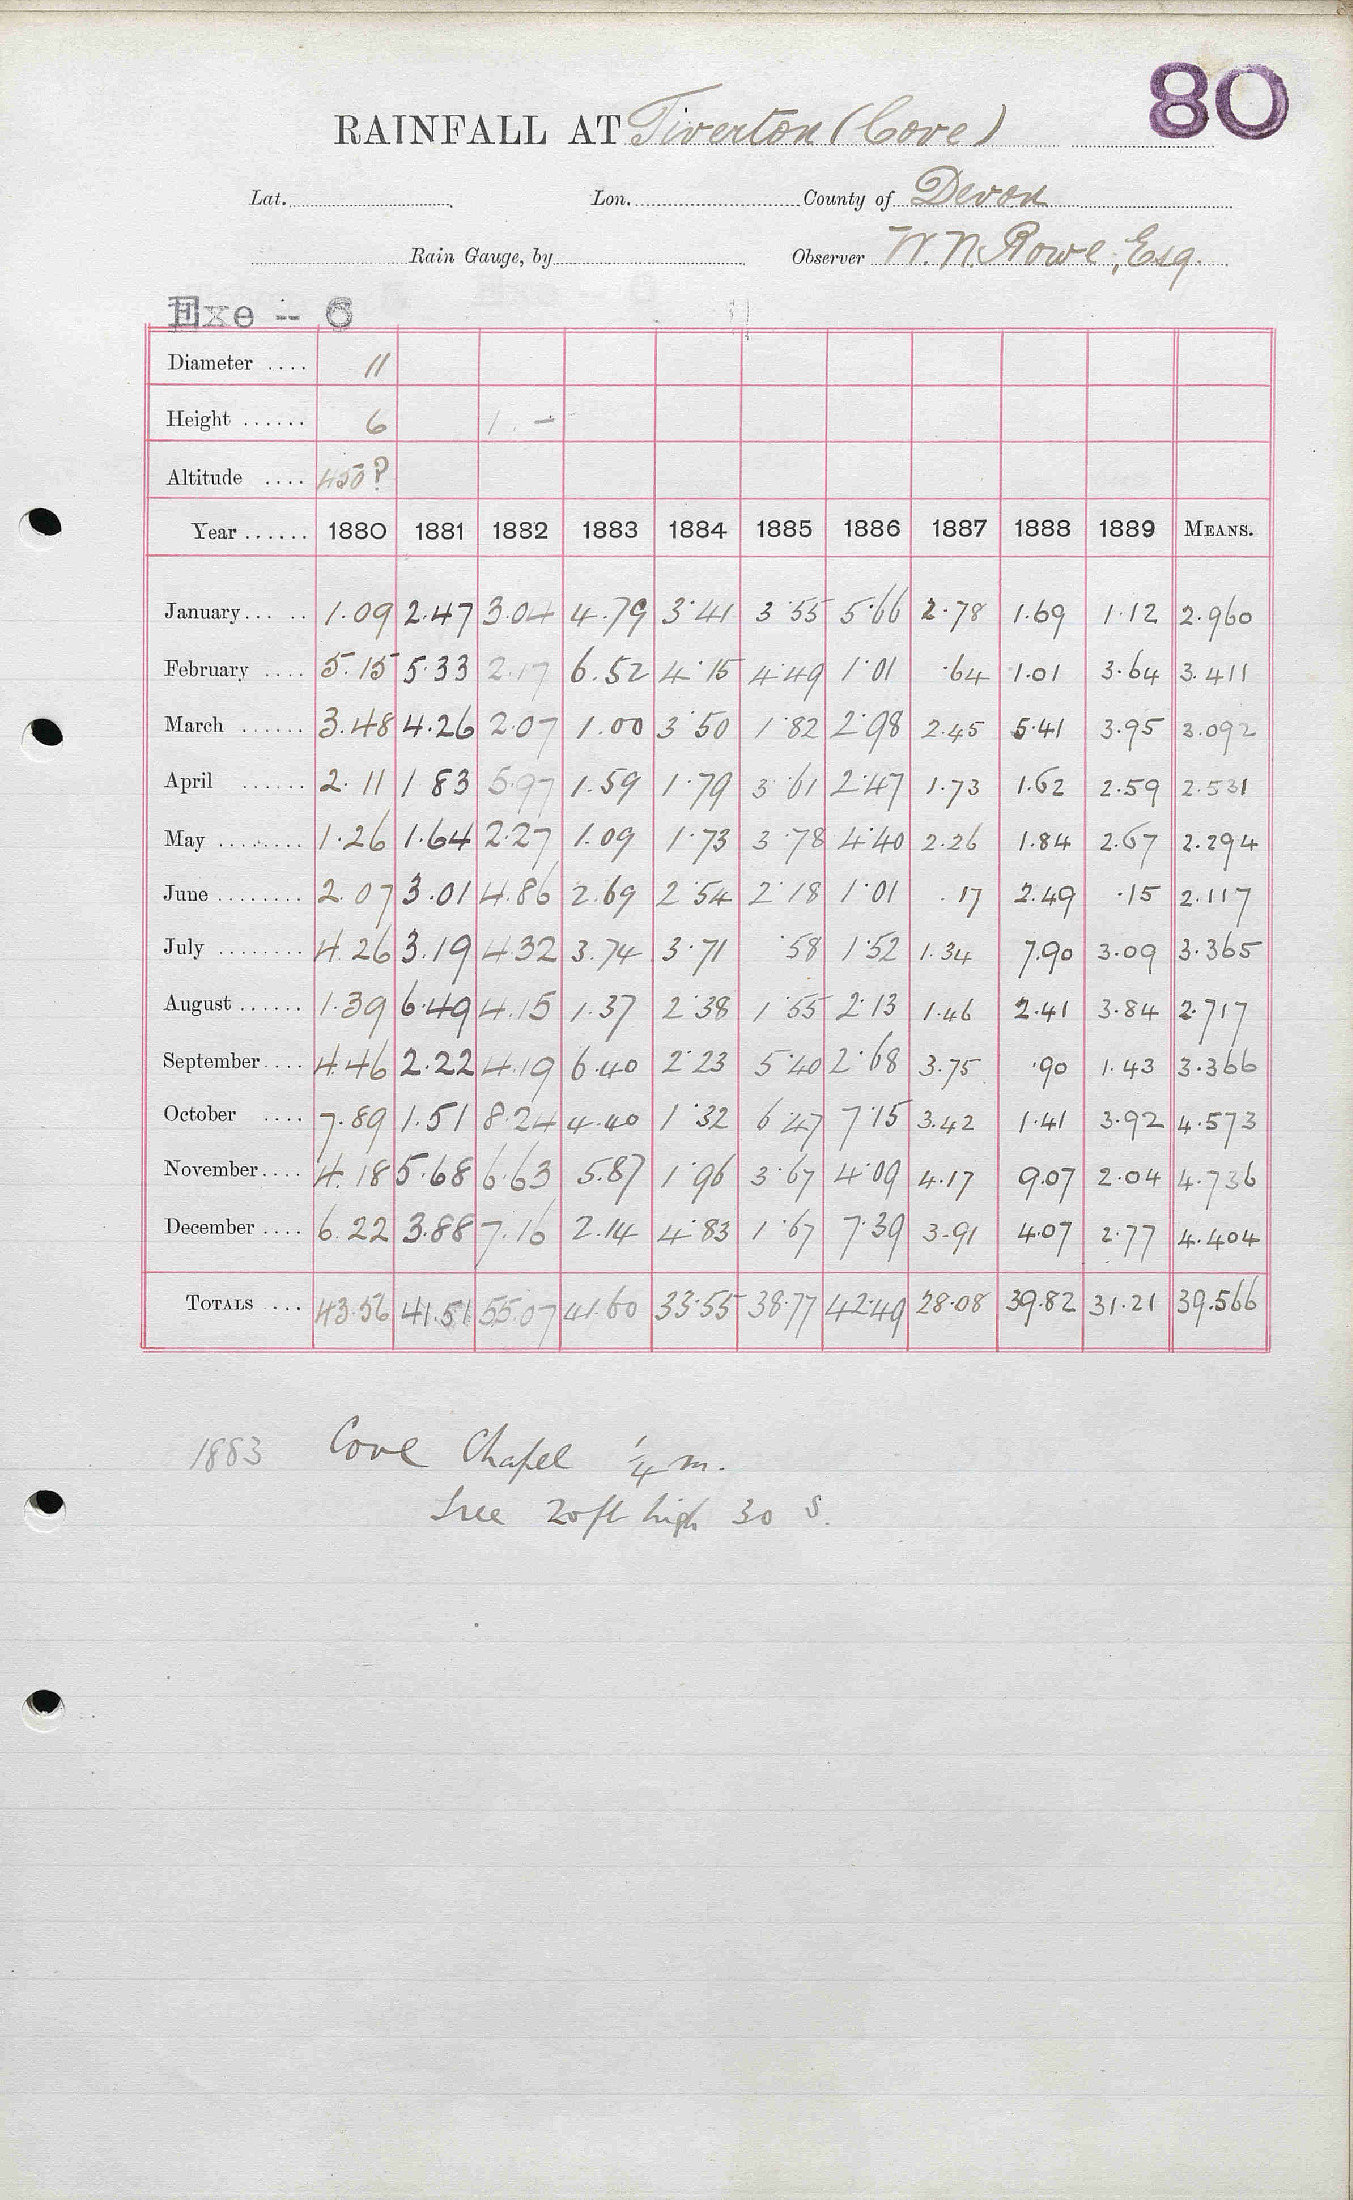 80
RAINFALL AT Tiverton (Cove)
Lat. Lon. County of Devon
Rain Gauge, by Observer W. N. Rowe, Esq.
Exe -- 6
Diameter .... 11
Height ...... 6 1. -
Altitude .... 450?
Year ...... 1880 1881 1882 1883 1884 1885 1886 1887 1888 1889 MEANS.
January... .. 1.09 2.47 3.04 4.79 3.41 3.55 5.66 2.78 1.69 1.12 2.960
February .... 5.15 5.33 2.17 6.52 4.15 4.49 1.01 .64 1.01 3.64 3.411
March ...... 3.48 4.26 2.07 1.00 3.50 1.82 2.98 2.45 5.41 3.95 3.092
April ...... 2.11 1 83 5.97 1.59 1.79 3.61 2.47 1.73 1.62 2.59 2.531
May ......... 1.26 1.64 2.27 1.09 1.73 3.78 4.40 2.26 1.84 2.67 2.294
June ........ 2.07 3.01 4.86 2.69 2.54 2.18 1.01 .17 2.49 .15 2.117
July ........ 4.26 3.19 4.32 3.74 3.71 .58 1.52 1.34 7.90 3.09 3.365
August ...... 1.39 6.49 4.15 1.37 2.38 1.55 2.13 1.46 2.41 3.84 2.717
September .... 4.46 2.22 4.19 6.40 2.23 5.40 2.68 3.75 .90 1.43 3.366
October .... 7.89 1.51 8.24 4.40 1.32 6.47 7.15 3.42 1.41 3.92 4.573
November.... 4.18 5.68 6.63 5.87 1.96 3.67 4.09 4.17 9.07 2.04 4.736
December .... 6.22 3.88 7.16 2.14 4.83 1.67 7.39 3.91 4.07 2.77 4.404
TOTALS ... 43.56 41.51 55.07 41.60 33.55 38.77 42.49 28.08 39.82 31.21 39.566
1883 Cove Chapel 1/4 m.
Tree 20ft high 30 S.